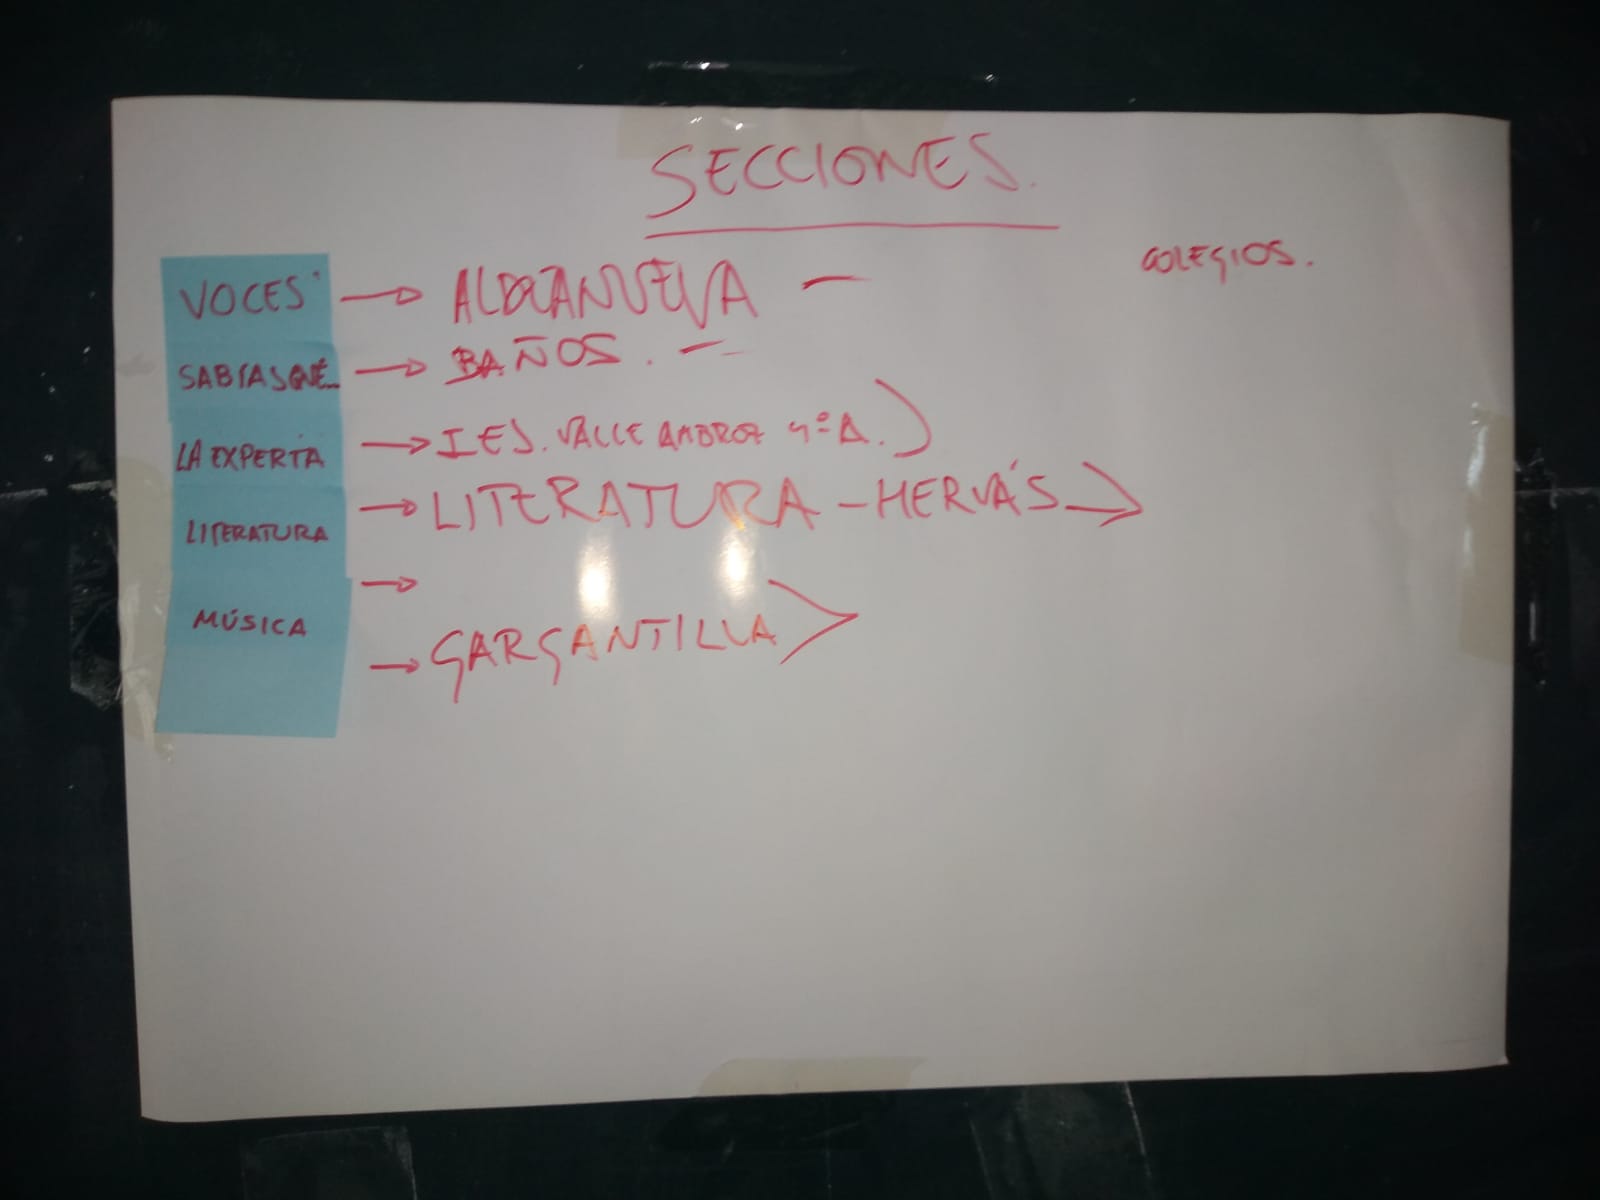 SECCIONES.
COLEGIOS.
VOCES → ALDEANUEVA –
SABIASQUÉ... → BAÑOS. –
LA EXPERTA → IES. VALLE AMBROZ 4ºA.)
LITERATURA → LITERATURA – HERVÁS →
MÚSICA →
→ GARGANTILLA >